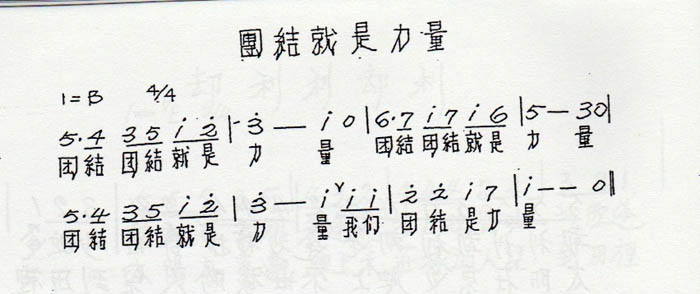 團結就是力量
1=B 4/4
5·4 3 5 i 2̇ | 3̇ — i 0 | 6·7 i 7 i 6 | 5 — 3 0 |
团結 团結 就是 力 量 团結 团結 就是 力 量
5·4 3 5 i 2̇ | 3̇ — i ˅ i i | 2̇ 2̇ i 7 | i — — 0 ‖
团結 团結 就是 力 量 我们 团結 是力 量